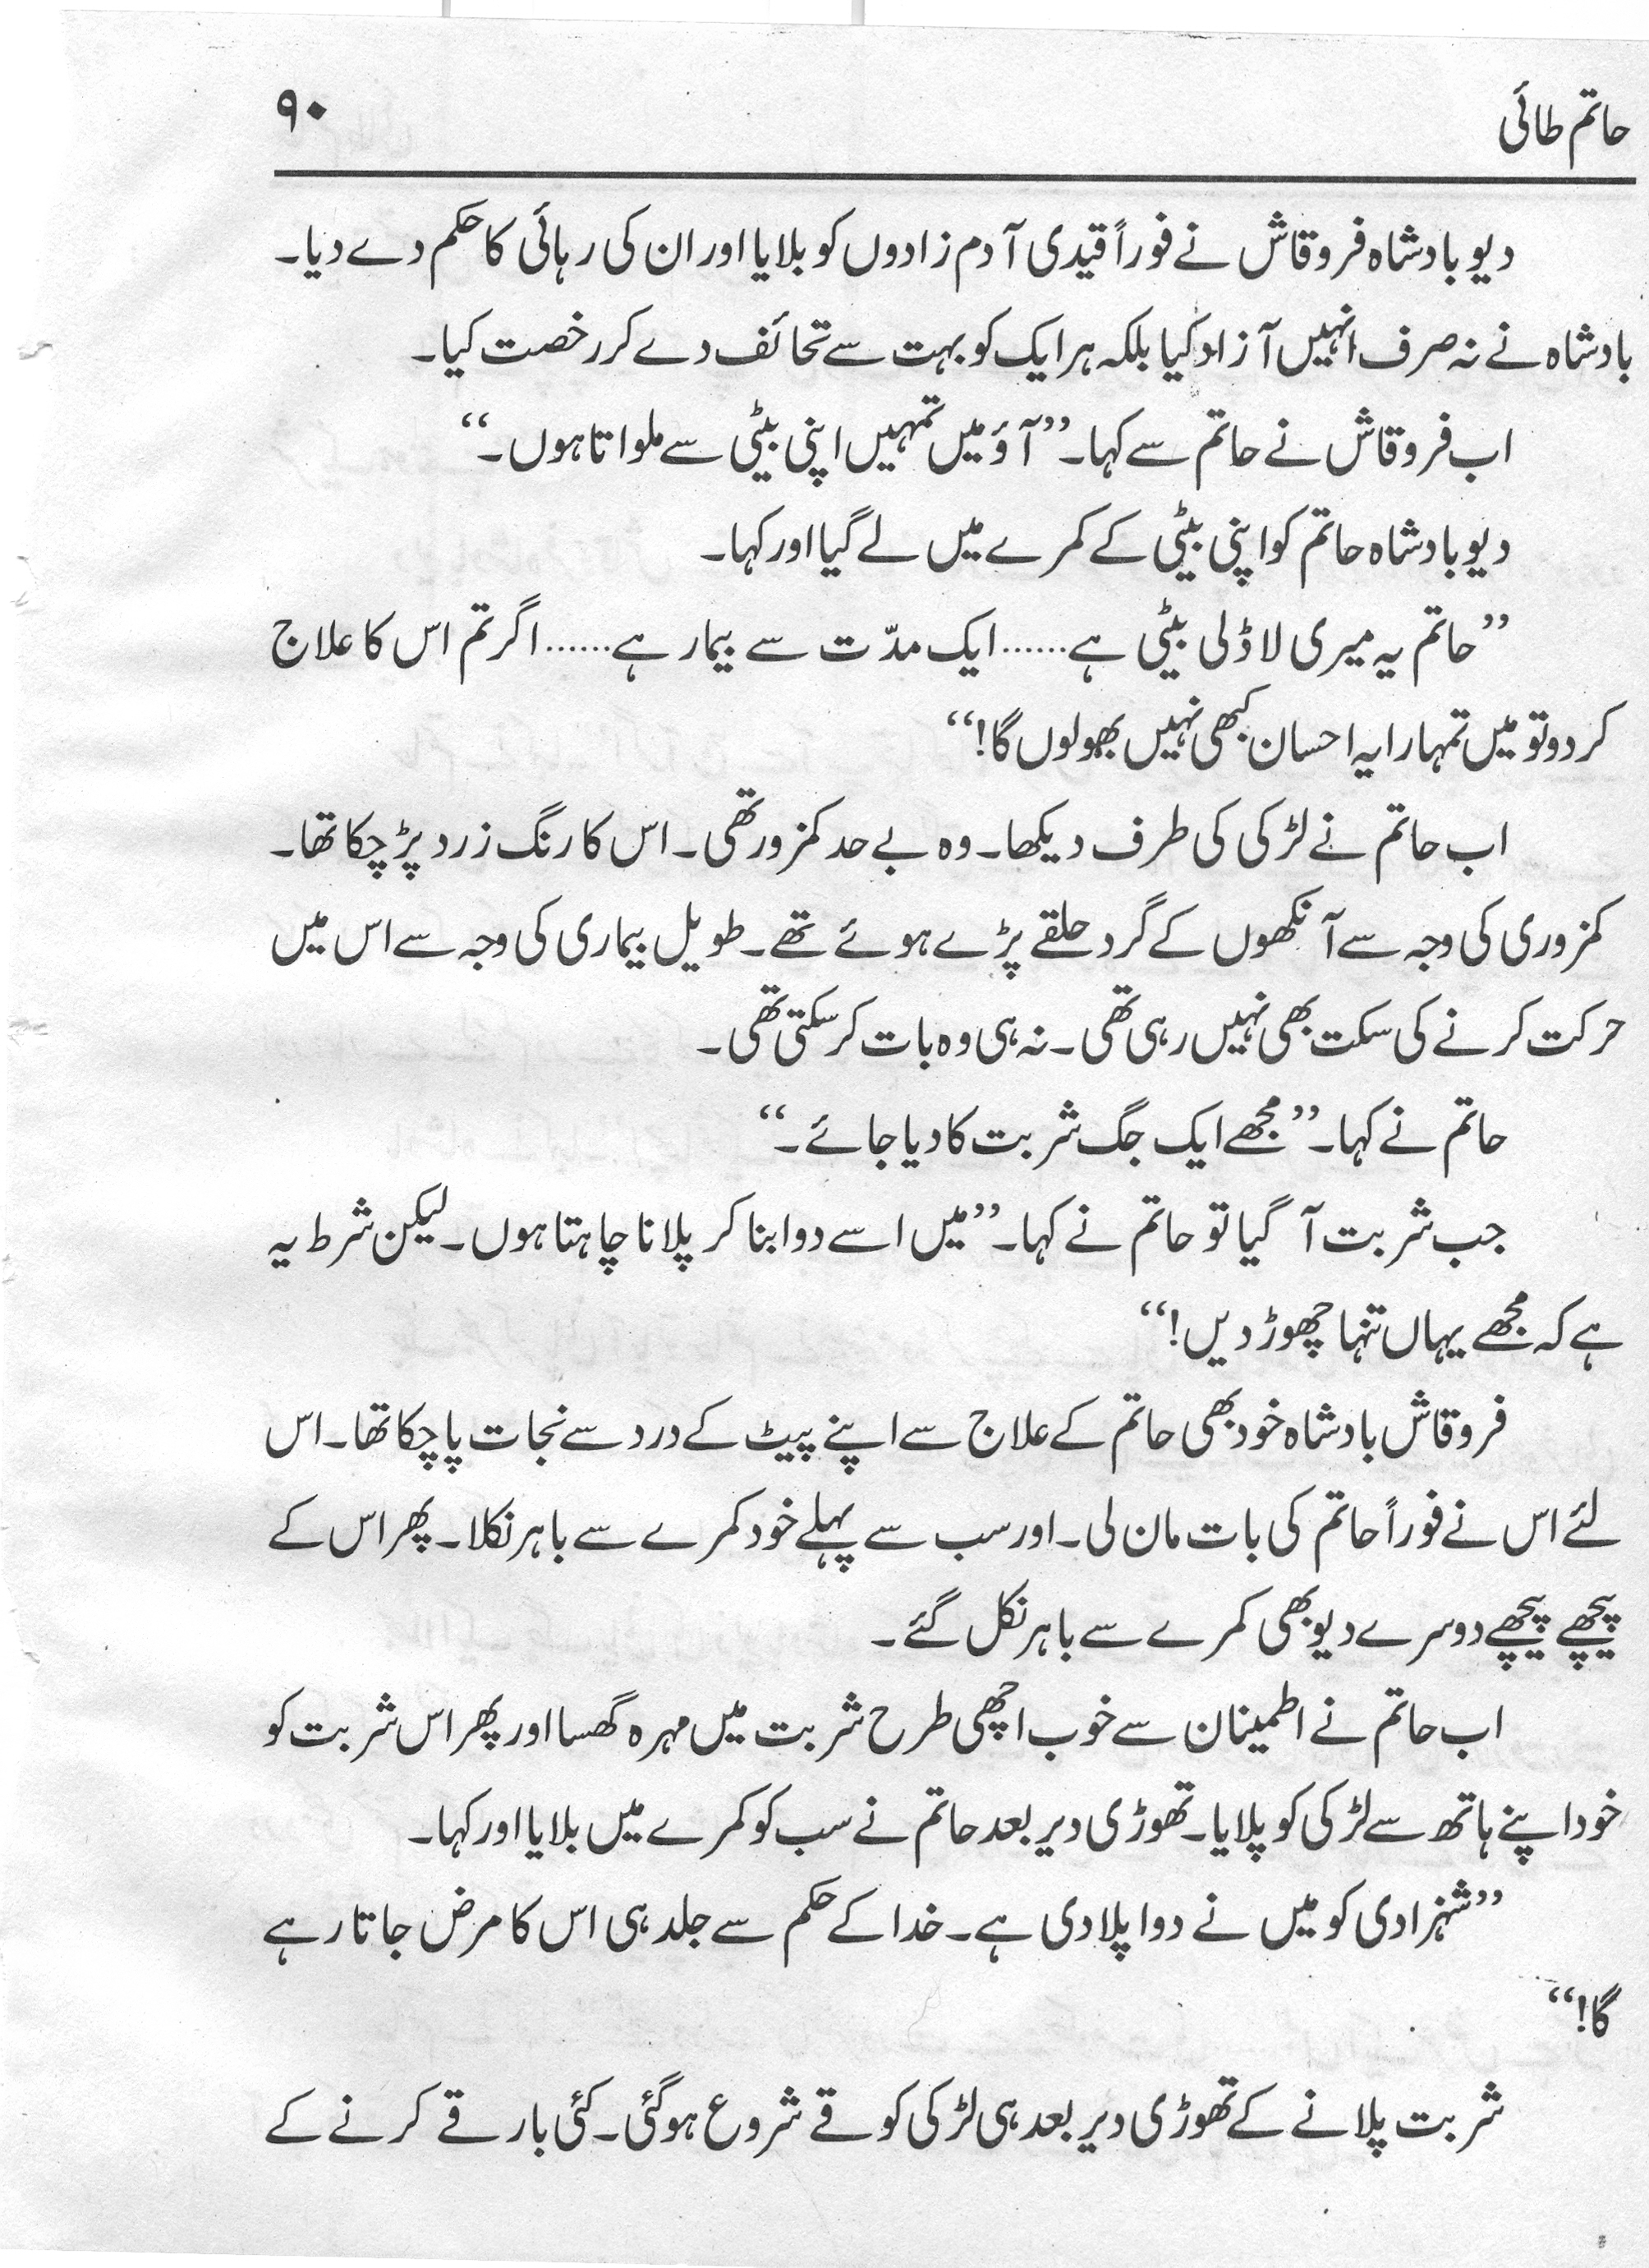 حاتم طائی ۹۰
دیو بادشاہ فروقاش نے فوراً قیدی آدم زادوں کو بلایا اور ان کی رہائی کا حکم دے دیا۔
بادشاہ نے نہ صرف انہیں آزاد کیا بلکہ ہر ایک کو بہت سے تحائف دے کر رخصت کیا۔
اب فروقاش نے حاتم سے کہا۔ ”آؤ میں تمہیں اپنی بیٹی سے ملواتا ہوں۔“
دیو بادشاہ حاتم کو اپنی بیٹی کے کمرے میں لے گیا اور کہا۔
”حاتم یہ میری لاڈلی بیٹی ہے...... ایک مدّت سے بیمار ہے...... اگر تم اس کا علاج
کر دو تو میں تمہارا یہ احسان کبھی نہیں بھولوں گا!“
اب حاتم نے لڑکی کی طرف دیکھا۔ وہ بے حد کمزور تھی۔ اس کا رنگ زرد پڑ چکا تھا۔
کمزوری کی وجہ سے آنکھوں کے گرد حلقے پڑے ہوئے تھے۔ طویل بیماری کی وجہ سے اس میں
حرکت کرنے کی سکت بھی نہیں رہی تھی۔ نہ ہی وہ بات کر سکتی تھی۔
حاتم نے کہا۔ ”مجھے ایک جگ شربت کا دیا جائے۔“
جب شربت آ گیا تو حاتم نے کہا۔ ”میں اسے دوا بنا کر پلانا چاہتا ہوں۔ لیکن شرط یہ
ہے کہ مجھے یہاں تنہا چھوڑ دیں!“
فروقاش بادشاہ خود بھی حاتم کے علاج سے اپنے پیٹ کے درد سے نجات پا چکا تھا۔ اس
لئے اس نے فوراً حاتم کی بات مان لی۔ اور سب سے پہلے خود کمرے سے باہر نکلا۔ پھر اس کے
پیچھے پیچھے دوسرے دیو بھی کمرے سے باہر نکل گئے۔
اب حاتم نے اطمینان سے خوب اچھی طرح شربت میں مہرہ گھسا اور پھر اس شربت کو
خود اپنے ہاتھ سے لڑکی کو پلایا۔ تھوڑی دیر بعد حاتم نے سب کو کمرے میں بلایا اور کہا۔
”شہزادی کو میں نے دوا پلا دی ہے۔ خدا کے حکم سے جلد ہی اس کا مرض جاتا رہے
گا!“
شربت پلانے کے تھوڑی دیر بعد ہی لڑکی کو قے شروع ہو گئی۔ کئی بار قے کرنے کے